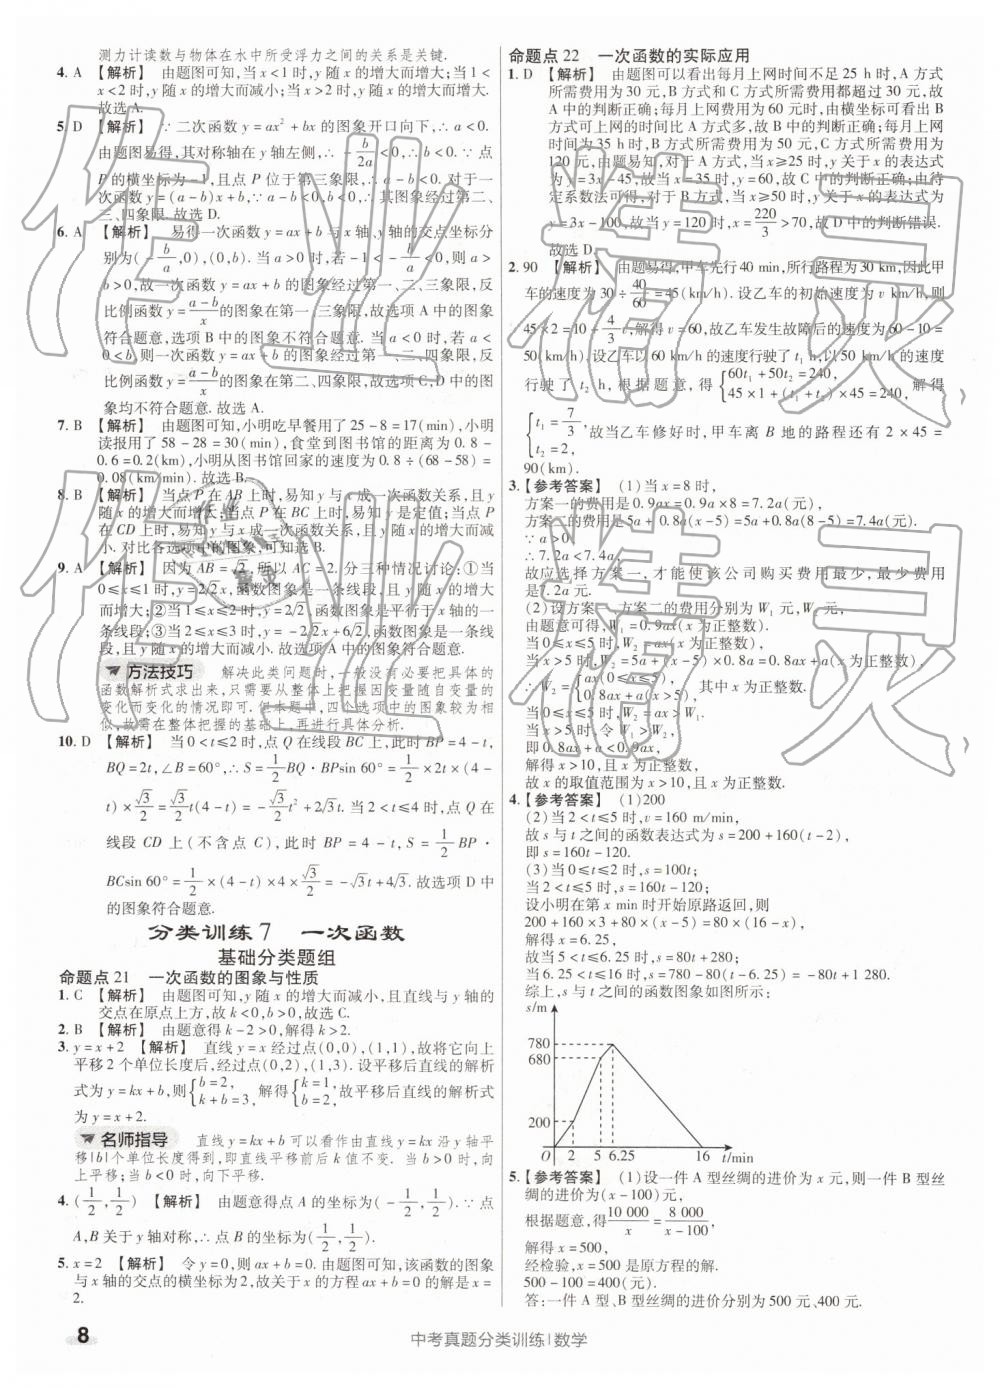 测力计读数与物体在水中所受浮力之间的关系是关键.
4. A 【解析】 由题图可知,当x<1时,y随x的增大而增大;当1<
x<2时,y随x的增大而减小;当x>2时,y随x的增大而增大.
故选A.
5. D 【解析】 ∵二次函数y=ax²+bx的图象开口向下,∴a<0.
由题图易得,其对称轴在y轴左侧,∴-b/2a<0,∴b<0.∵点
P的横坐标为-1,且点P位于第三象限,∴a-b<0.对于一
次函数y=(a-b)x+b,∵a-b<0,b<0,∴其图象经过第二、
三、四象限.故选D.
6. A 【解析】 易得一次函数y=ax+b与x轴、y轴的交点坐标分
别为(-b/a,0),(0,b).当a>0时,若-1<-b/a<0,则a>
b>0,此时一次函数y=ax+b的图象经过第一、二、三象限,反
比例函数y=(a-b)/x的图象在第一、三象限,故选项A中的图象
符合题意,选项B中的图象不符合题意.当a<0时,若a<
b<0,则一次函数y=ax+b的图象经过第一、二、四象限,反
比例函数y=(a-b)/x的图象在第二、四象限,故选项C,D中的图
象均不符合题意.故选A.
7. B 【解析】 由题图可知,小明吃早餐用了25-8=17(min),小明
读报用了58-28=30(min),食堂到图书馆的距离为0.8-
0.6=0.2(km),小明从图书馆回家的速度为0.8÷(68-58)=
0.08(km/min).故选B.
8. B 【解析】 当点P在AB上时,易知y与x成一次函数关系,且y
随x的增大而增大;当点P在BC上时,易知y是定值;当点P
在CD上时,易知y与x成一次函数关系,且y随x的增大而减
小.对比各选项中的图象,可知选B.
9. A 【解析】 因为AB=√2,所以AC=2.分三种情况讨论:①当
0≤x≤1时,y=2√2x,函数图象是一条线段,且y随x的增大
而增大;②当1≤x≤2时,y=2√2,函数图象是平行于x轴的一
条线段;③当2≤x≤3时,y=-2√2x+6√2,函数图象是一条线
段,且y随x的增大而减小.故选项A中的图象符合题意.
方法技巧 解决此类问题时,一般没有必要把具体的
函数解析式求出来,只需要从整体上把握因变量随自变量的
变化而变化的情况即可.但本题中,四个选项中的图象较为相
似,故需在整体把握的基础上,再进行具体分析.
10. D 【解析】 当0<t≤2时,点Q在线段BC上,此时BP=4-t,
BQ=2t,∠B=60°,∴S=1/2BQ·BPsin 60°=1/2×2t×(4-
t)×√3/2=√3/2t(4-t)=-√3/2t²+2√3t.当2<t≤4时,点Q在
线段CD上(不含点C),此时BP=4-t,S=1/2BP·
BCsin 60°=1/2×(4-t)×4×√3/2=-√3t+4√3.故选项D中
的图象符合题意.
分类训练7 一次函数
基础分类题组
命题点21 一次函数的图象与性质
1. C 【解析】 由题图可知,y随x的增大而减小,且直线与y轴的
交点在原点上方,故k<0,b>0,故选C.
2. B 【解析】 由题意得k-2>0,解得k>2.
3. y=x+2 【解析】 直线y=x经过点(0,0),(1,1),故将它向上
平移2个单位长度后,经过点(0,2),(1,3).设平移后直线的解析
式为y=kx+b,则{b=2, k+b=3, 解得{k=1, b=2, 故平移后直线的解析式
为y=x+2.
名师指导 直线y=kx+b可以看作由直线y=kx沿y轴平
移|b|个单位长度得到,即直线平移前后k值不变.当b>0时,向
上平移;当b<0时,向下平移.
4. (1/2,1/2) 【解析】 由题意得点A的坐标为(-1/2,1/2).∵点
A,B关于y轴对称,∴点B的坐标为(1/2,1/2).
5. x=2 【解析】 令y=0,则ax+b=0.由题图可知,该函数的图象
与x轴的交点的横坐标为2,故关于x的方程ax+b=0的解是x=
2.
命题点22 一次函数的实际应用
1. D 【解析】 由题图可以看出每月上网时间不足25 h时,A方式
所需费用为30元,B方式和C方式所需费用都超过30元,故
A中的判断正确;每月上网费用为60元时,由横坐标可看出B
方式可上网的时间比A方式多,故B中的判断正确;每月上网
时间为35 h时,B方式所需费用为50元,C方式所需费用为
120元,由题易知,对于A方式,当x≥25时,y关于x的表达式
为y=3x-45,故当x=35时,y=60,故C中的判断正确;由待
定系数法易得,对于B方式,当x≥50时,y关于x的表达式为
y=3x-100,故当y=120时,x=220/3>70,故D中的判断错误.
故选D.
2. 90 【解析】 由题易得,甲车先行40 min,所行路程为30 km,因此甲
车的速度为30÷40/60=45(km/h).设乙车的初始速度为v km/h,则
45×2=10+4/3v,解得v=60,故乙车发生故障后的速度为60-10=
50(km/h).设乙车以60 km/h的速度行驶了t₁ h,以50 km/h的速度
行驶了t₂ h,根据题意,得{60t₁+50t₂=240, 45×1+(t₁+t₂)×45=240, 解得
{t₁=7/3, t₂=2, 故当乙车修好时,甲车离B地的路程还有2×45=
90(km).
3. 【参考答案】 (1)当x=8时,
方案一的费用是0.9ax=0.9a×8=7.2a(元),
方案二的费用是5a+0.8a(x-5)=5a+0.8a(8-5)=7.4a(元).
∵a>0,
∴7.2a<7.4a,
故应选择方案一,才能使该公司购买费用最少,最少费用
是7.2a元.
(2)设方案一、方案二的费用分别为W₁元,W₂元,
由题意可得,W₁=0.9ax(x为正整数).
当0≤x≤5时,W₂=ax(x为正整数);
当x>5时,W₂=5a+(x-5)×0.8a=0.8ax+a(x为正整数),
∴W₂={ax(0≤x≤5), 0.8ax+a(x>5), 其中x为正整数.
当0≤x≤5时,W₂=ax>W₁.
当x>5时,令W₁>W₂,
即0.8ax+a<0.9ax,
解得x>10,且x为正整数,
故x的取值范围为x>10,且x为正整数.
4. 【参考答案】 (1)200
(2)当2<t≤5时,v=160 m/min,
故s与t之间的函数表达式为s=200+160(t-2),
即s=160t-120.
(3)当0≤t≤2时,s=100t;
当2<t≤5时,s=160t-120;
设小明在第x min时开始原路返回,则
200+160×3+80×(x-5)=80×(16-x),
解得x=6.25,
故当5<t≤6.25时,s=80t+280;
当6.25<t≤16时,s=780-80(t-6.25)=-80t+1 280.
综上,s与t之间的函数图象如图所示:
s/m
780
680
200
O 2 5 6.25 16 t/min
5. 【参考答案】 (1)设一件A型丝绸的进价为x元,则一件B型丝
绸的进价为(x-100)元,
根据题意,得10 000/x=8 000/(x-100),
解得x=500,
经检验,x=500是原方程的解.
500-100=400(元).
答:一件A型、B型丝绸的进价分别为500元、400元.
8
中考真题分类训练|数学
作业精灵
作业精灵